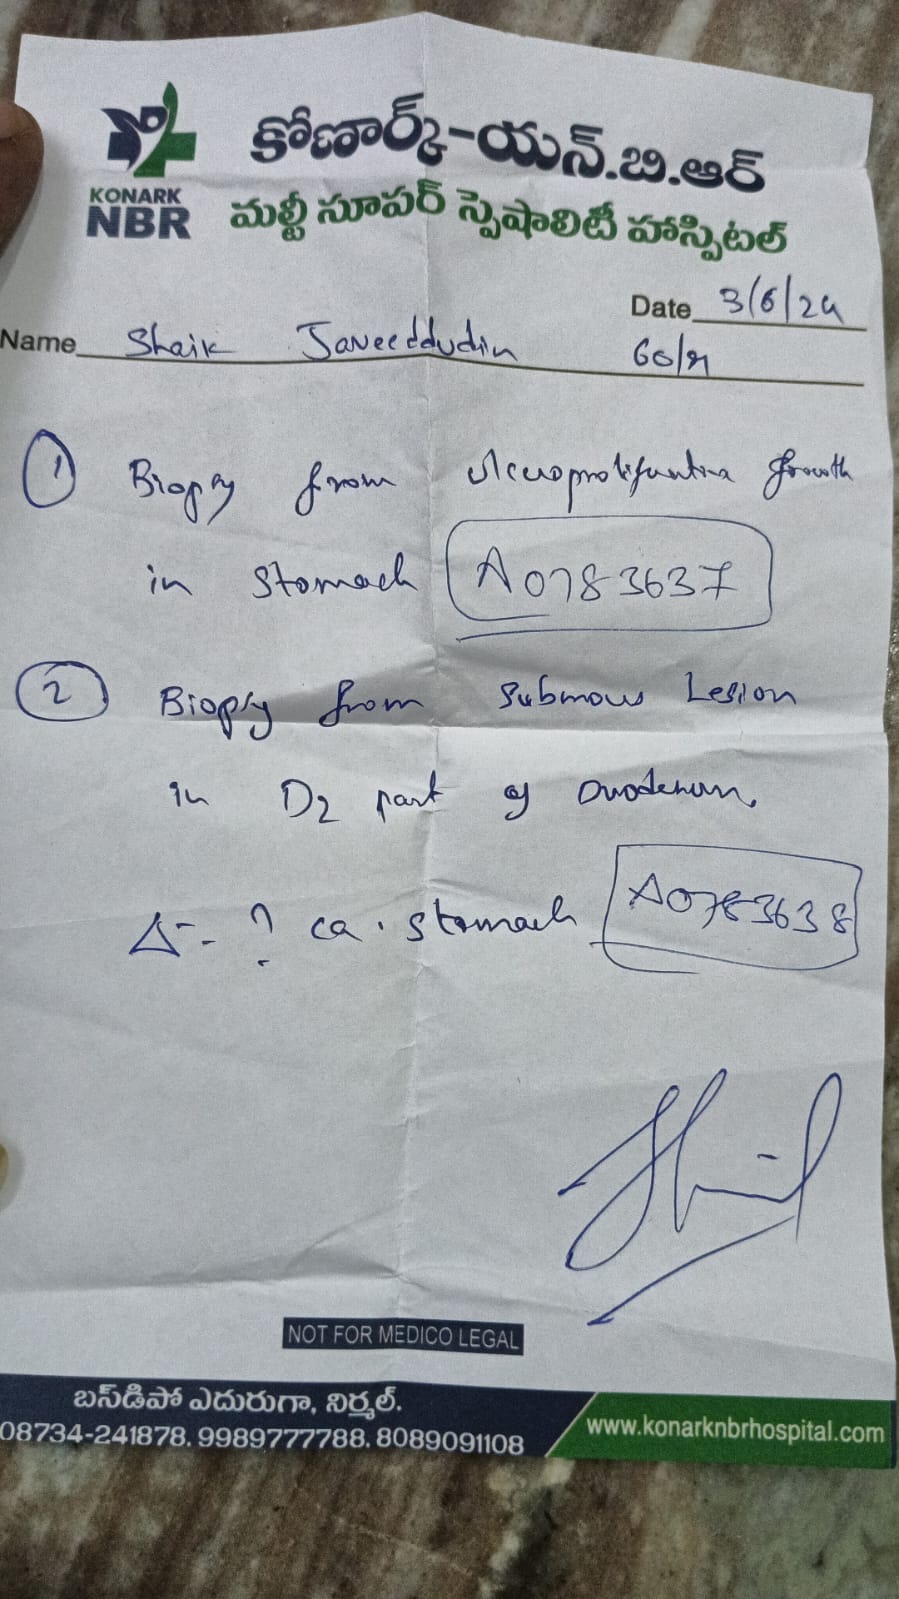 కోణార్క్-యన్.బి.ఆర్
KONARK
NBR
మల్టీ సూపర్ స్పెషాలిటీ హాస్పిటల్
Date 3/6/24
Name Shaik Javeeddudin 60/M
1 Biopsy from ulceroproliferative growth
in stomach A0783637
2 Biopsy from submous Lesion
in D2 part of Duodenum.
Δ-- ? ca. stomach A0783638
NOT FOR MEDICO LEGAL
బస్‌డిపో ఎదురుగా, నిర్మల్.
08734-241878. 9989777788. 8089091108
www.konarknbrhospital.com